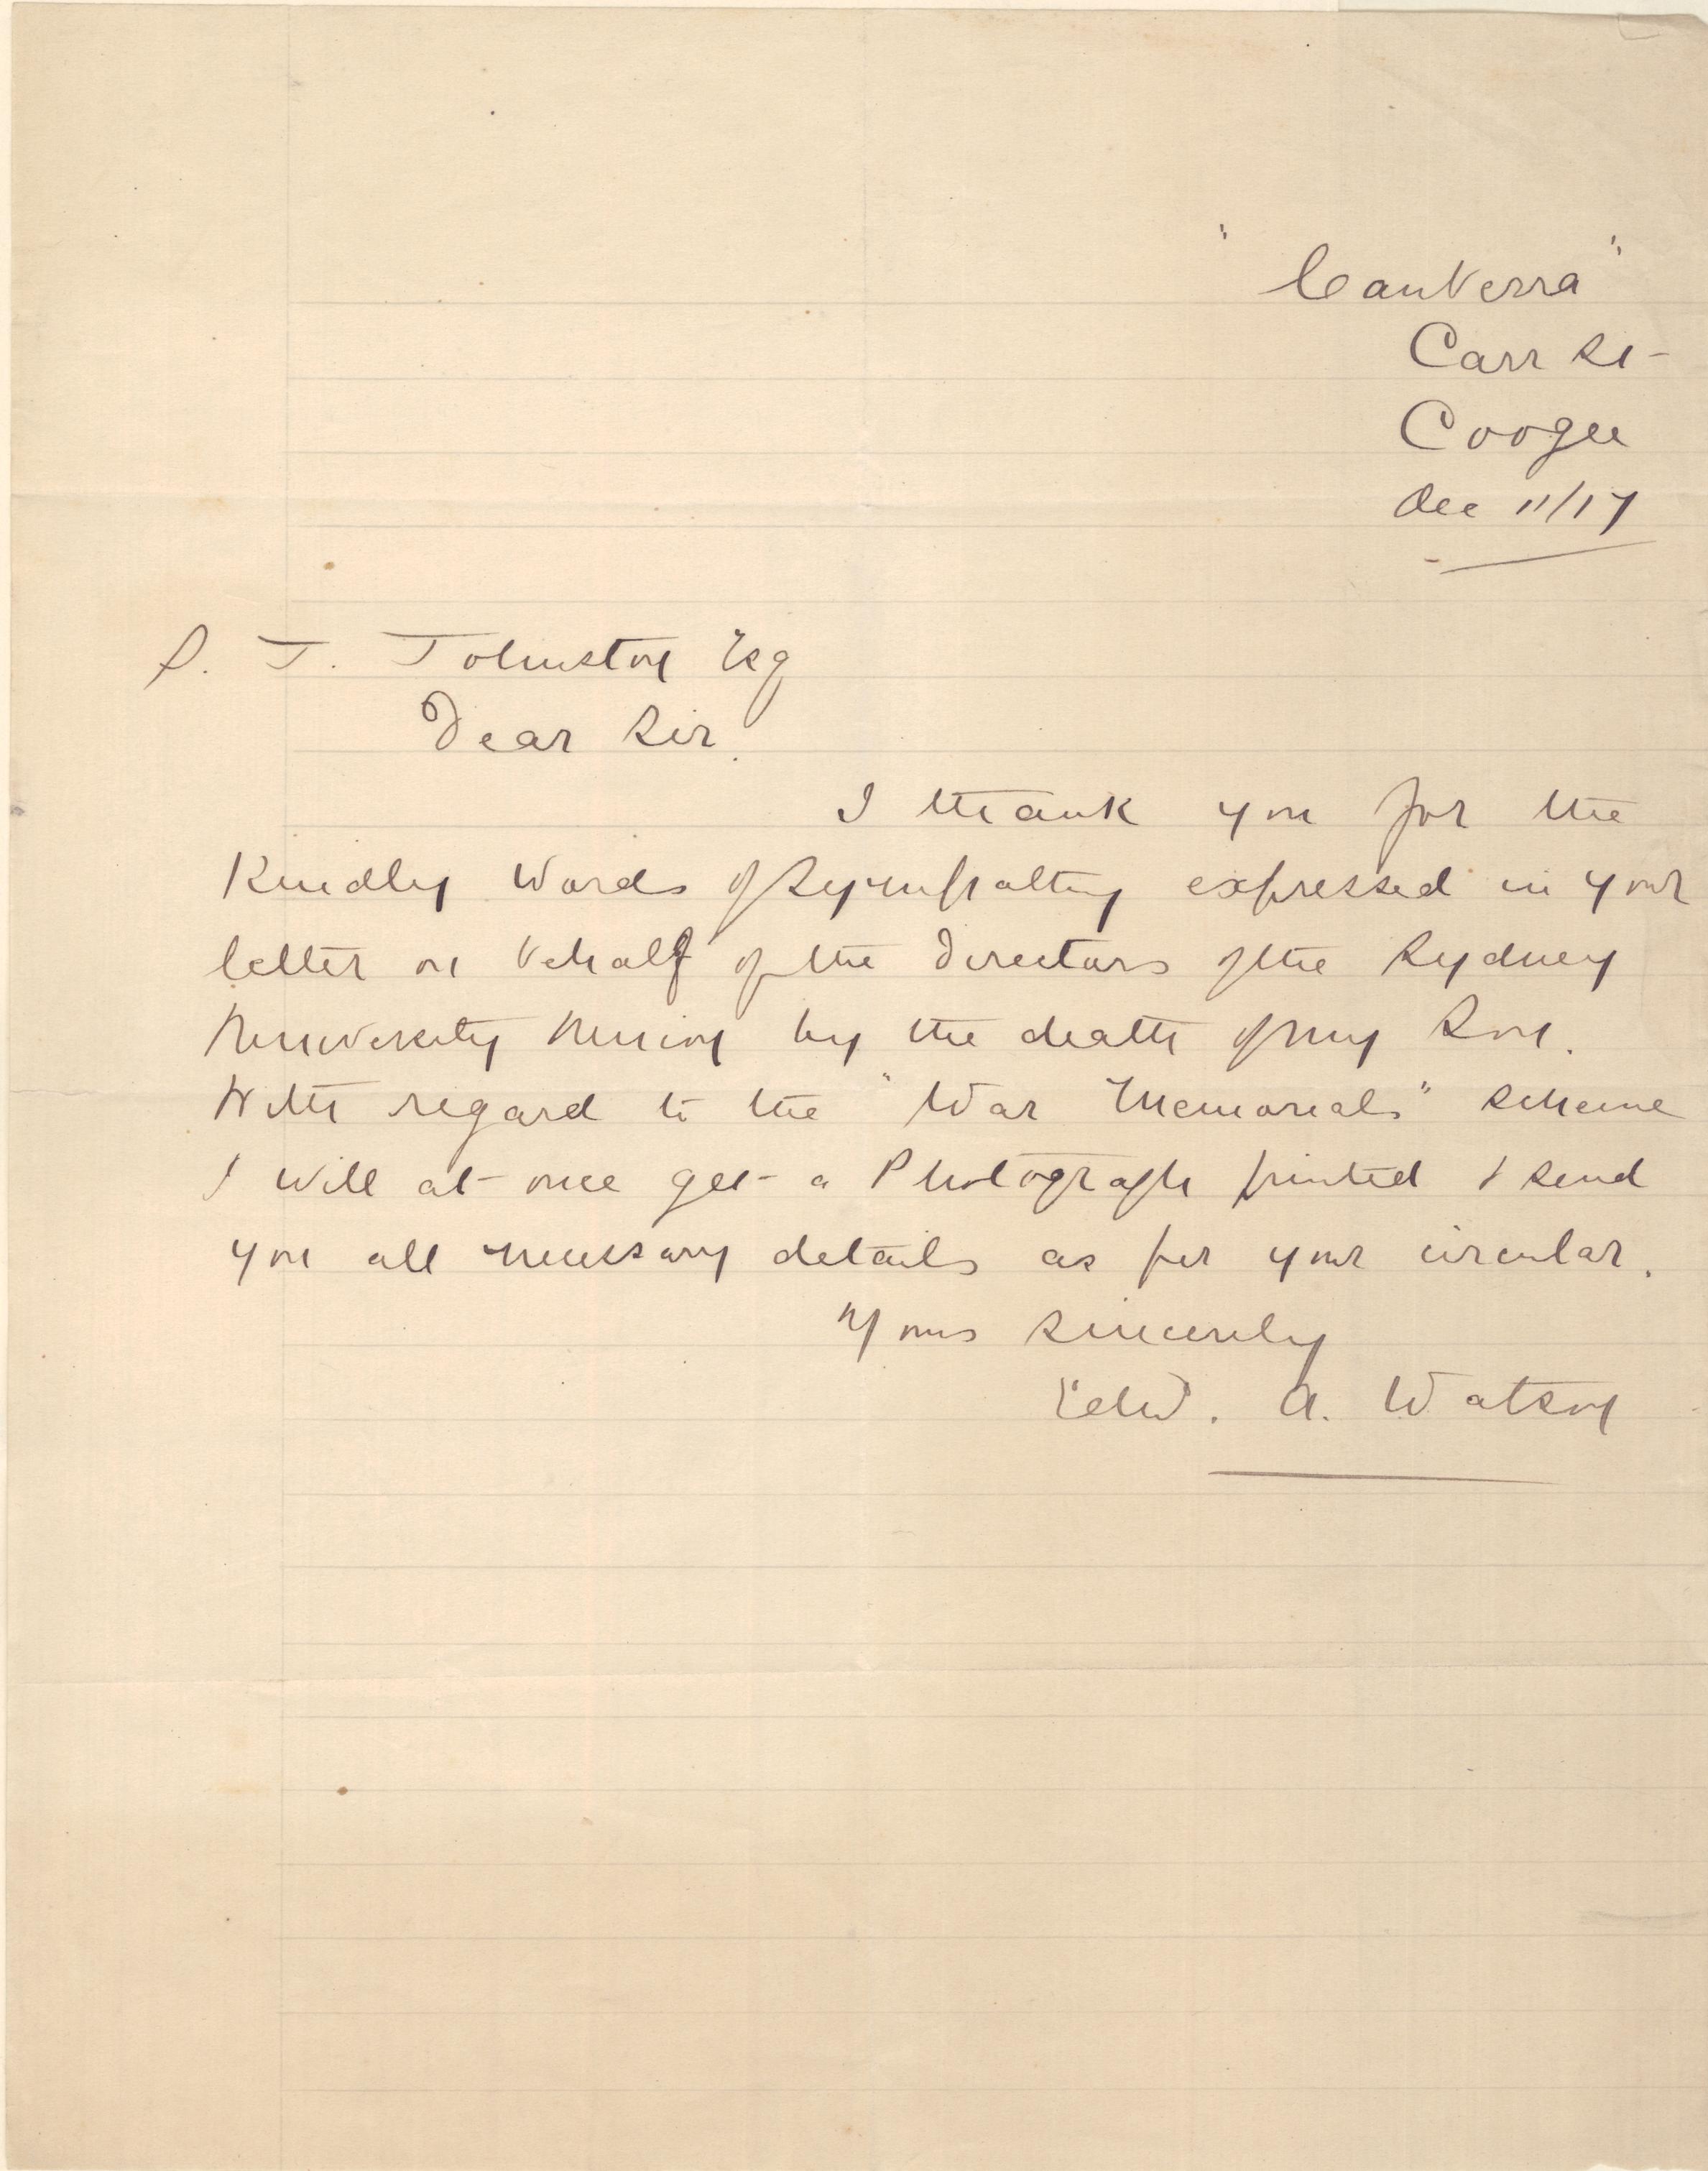 "Canberra"
Carr St
Coogee
Dec 11/17
S. J. Johnston Esq
Dear Sir.
I thank you for the
Kindly Words of Sympathy expressed in your
letter on behalf of the Directors of the Sydney
University Union by the death of my Son.
With regard to the "War Memorials" scheme
I will at once get a Photograph printed & send
you all necessary details as per your circular.
Yours sincerely
Edw. A. Watson